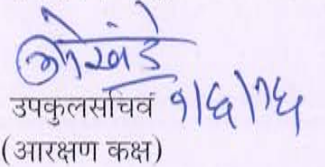 उपकुलसचिव १/६/१६
(आरक्षण कक्ष)